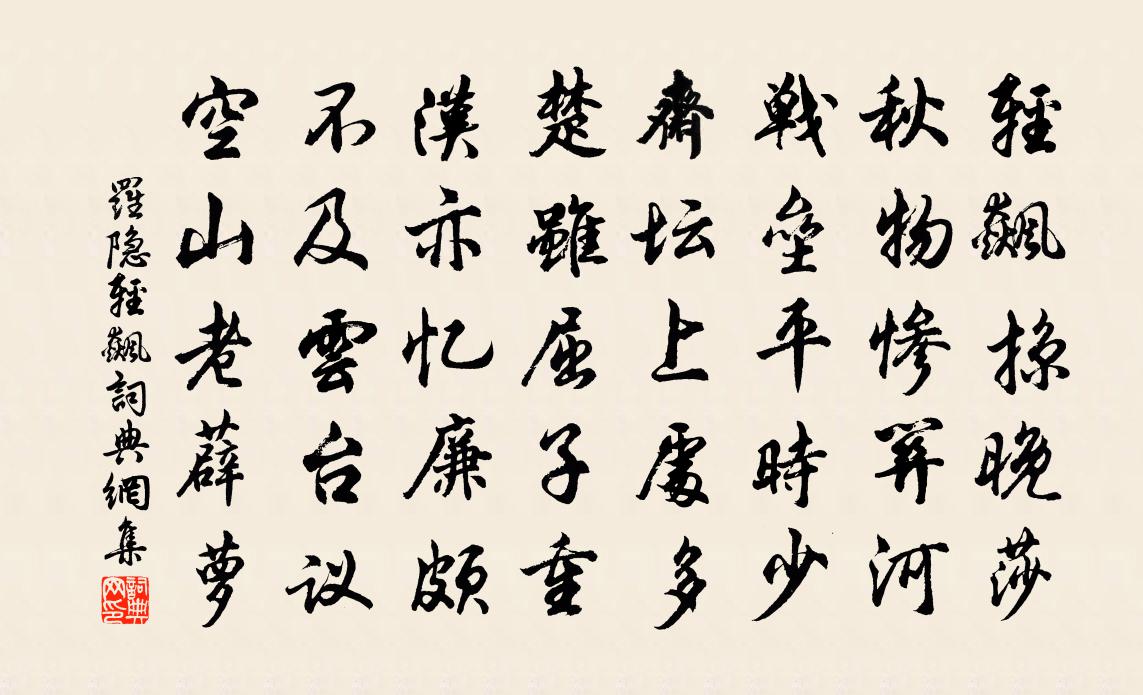 輕飆掠晚莎
秋物惨関河
戦壘平時少
齋坛上處多
楚雖屈子重
漢亦忆廉頗
不及雲台议
空山老薜萝
羅隐輕飆詞典網集
詞典网印